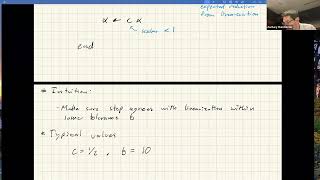 expected reduction
from linearization
α ← c α
scalar < 1
end
* Intuition:
- Make sure step agrees with linearization within
b
* Typical values
c = 1/2 , b = 10